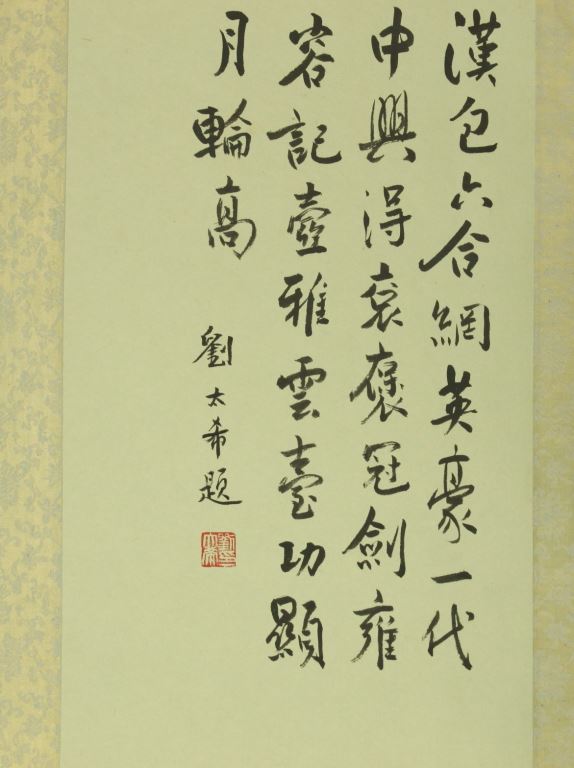 漢包六合網英豪一代
中興得袞褒冠劍雍
容記壺雅雲臺功顯
月輪高
劉太希題